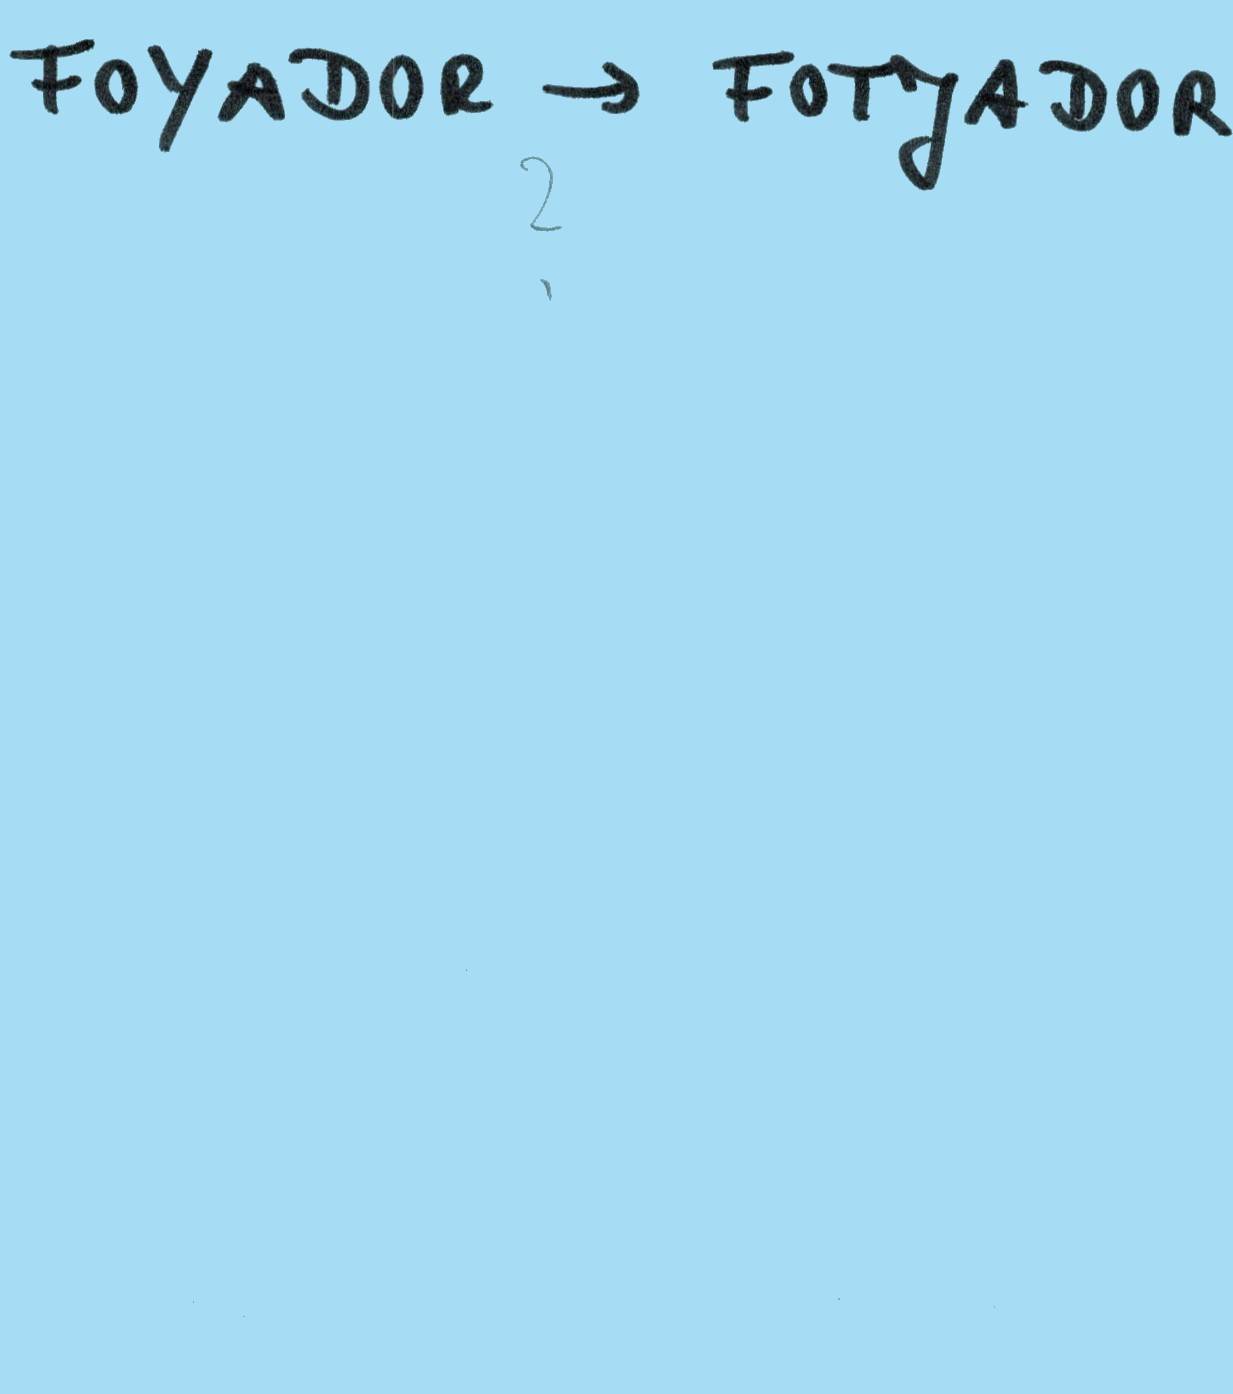 FOYADOR → FOTYADOR
?